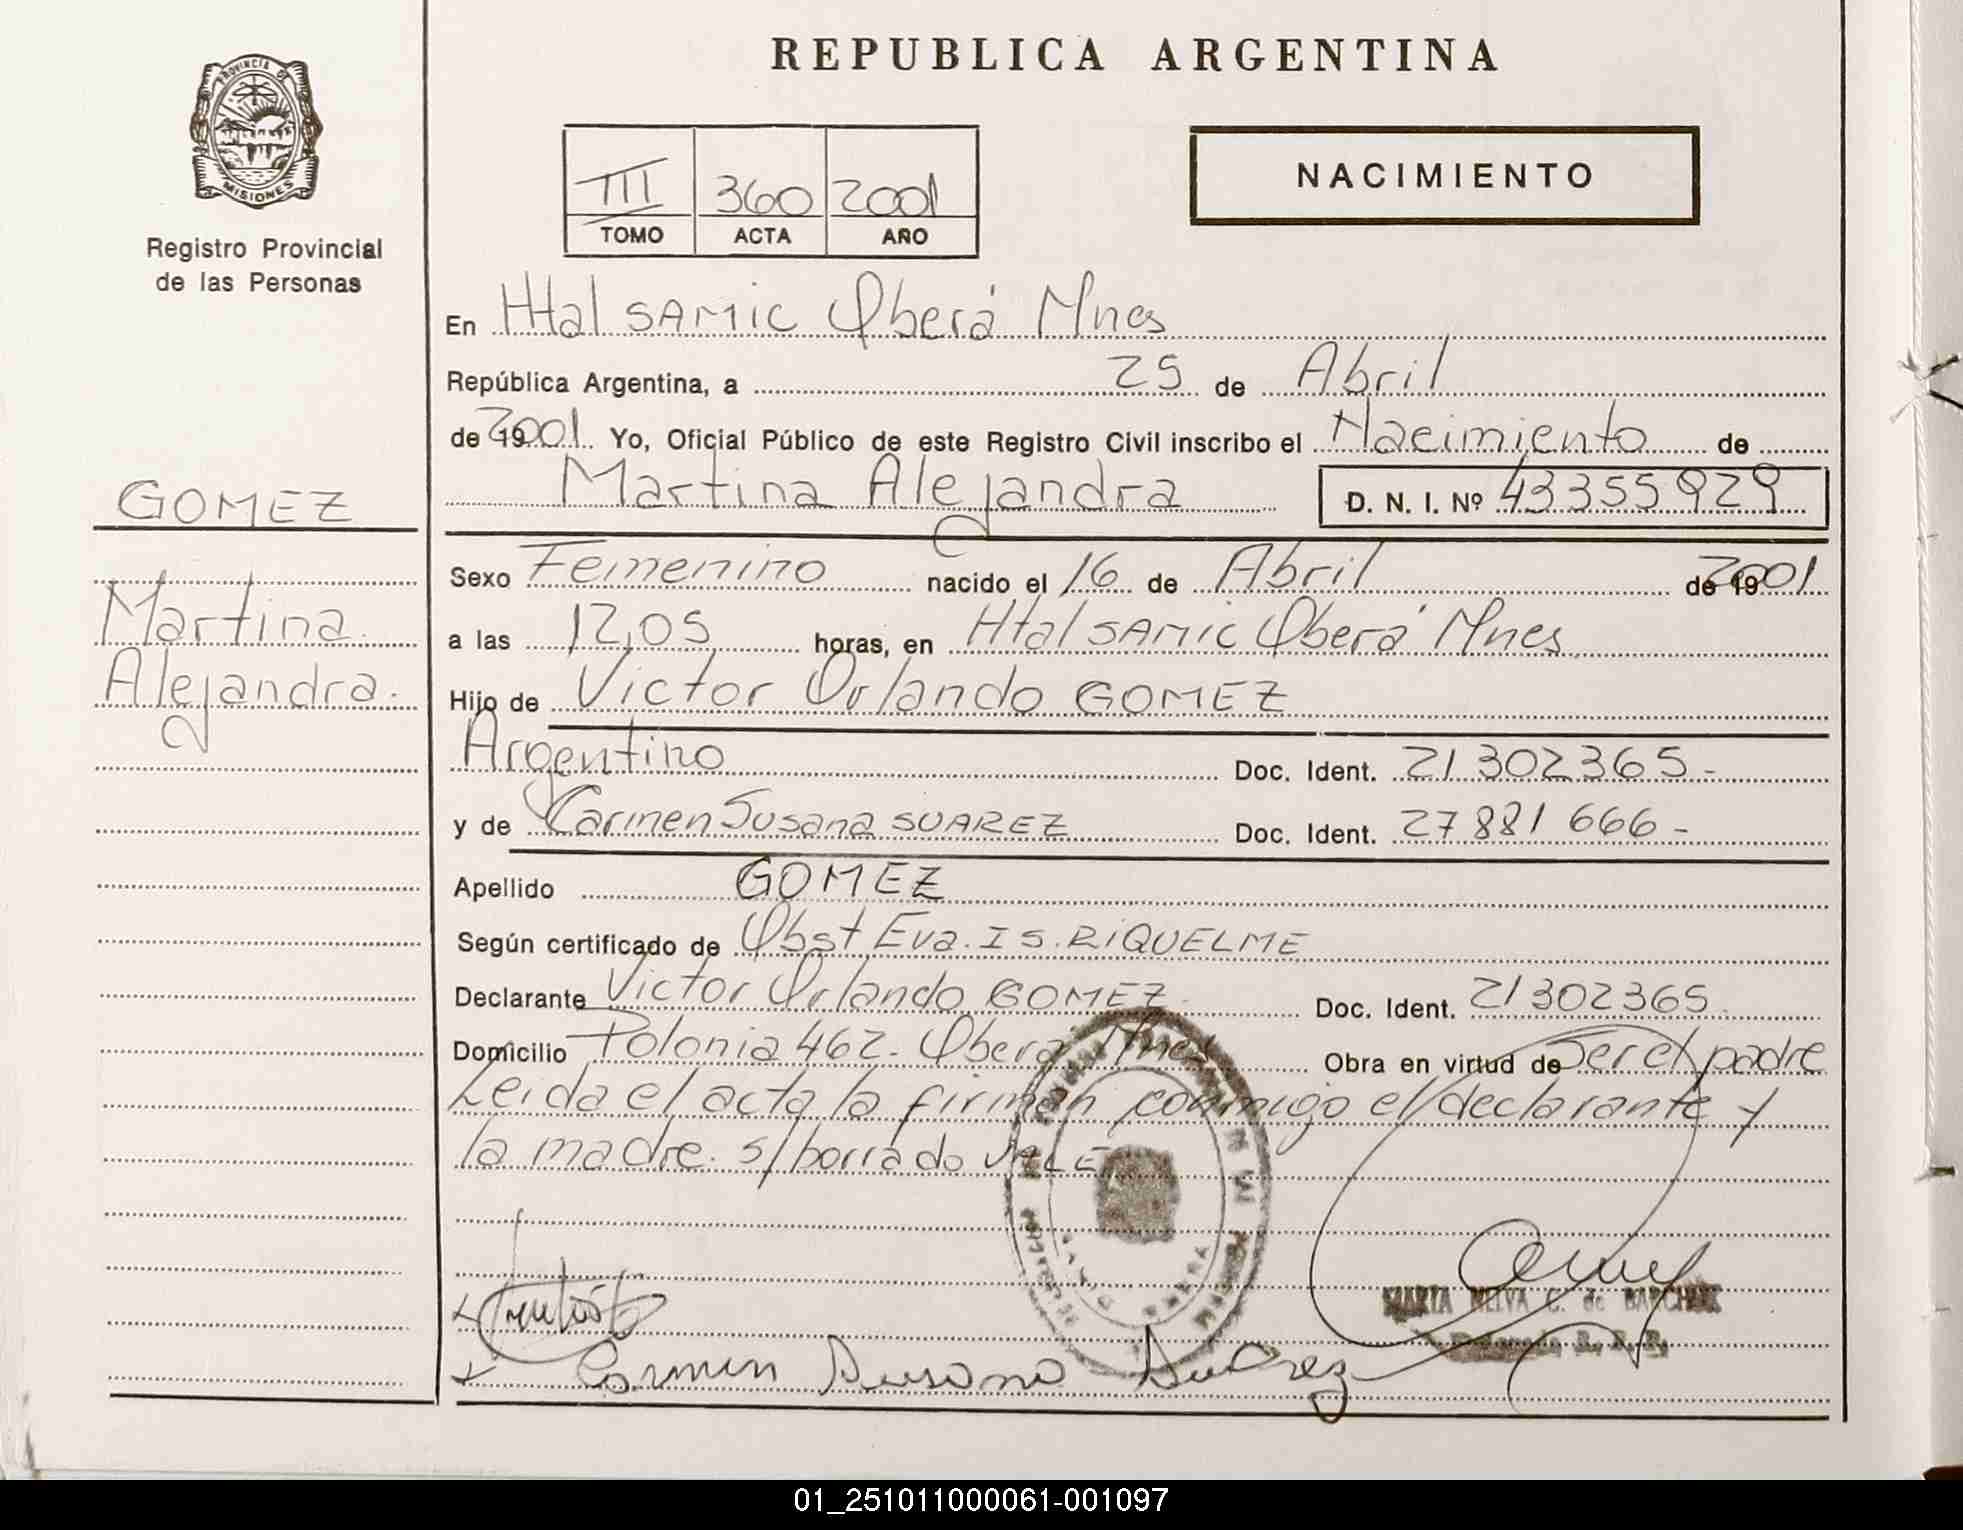 REPUBLICA ARGENTINA
PROVINCIA DE
MISIONES
Registro Provincial
de las Personas
III 360 2001
TOMO ACTA AÑO
NACIMIENTO
En Htal SAMIC Oberá Mnes
República Argentina, a 25 de Abril
de 19 2001 Yo, Oficial Público de este Registro Civil inscribo el Nacimiento de
Martina Alejandra D. N. I. Nº 43355929
GOMEZ
Martina
Alejandra.
Sexo Femenino nacido el 16 de Abril de 19 2001
a las 12,05 horas, en Htal SAMIC Oberá Mnes
Hijo de Victor Orlando GOMEZ
Argentino Doc. Ident. 21302365-
y de Carmen Susana SUAREZ Doc. Ident. 27881666-
Apellido GOMEZ
Según certificado de Obst Eva. IS. RIQUELME
Declarante Victor Orlando GOMEZ Doc. Ident. 21302365
Domicilio Polonia 462. Oberá Mnes Obra en virtud de Ser el padre
Leida el acta la firman conmigo el declarante y
la madre. s/borrado VALE
MARTA C. de
Carmen Susana Suarez
01_251011000061-001097